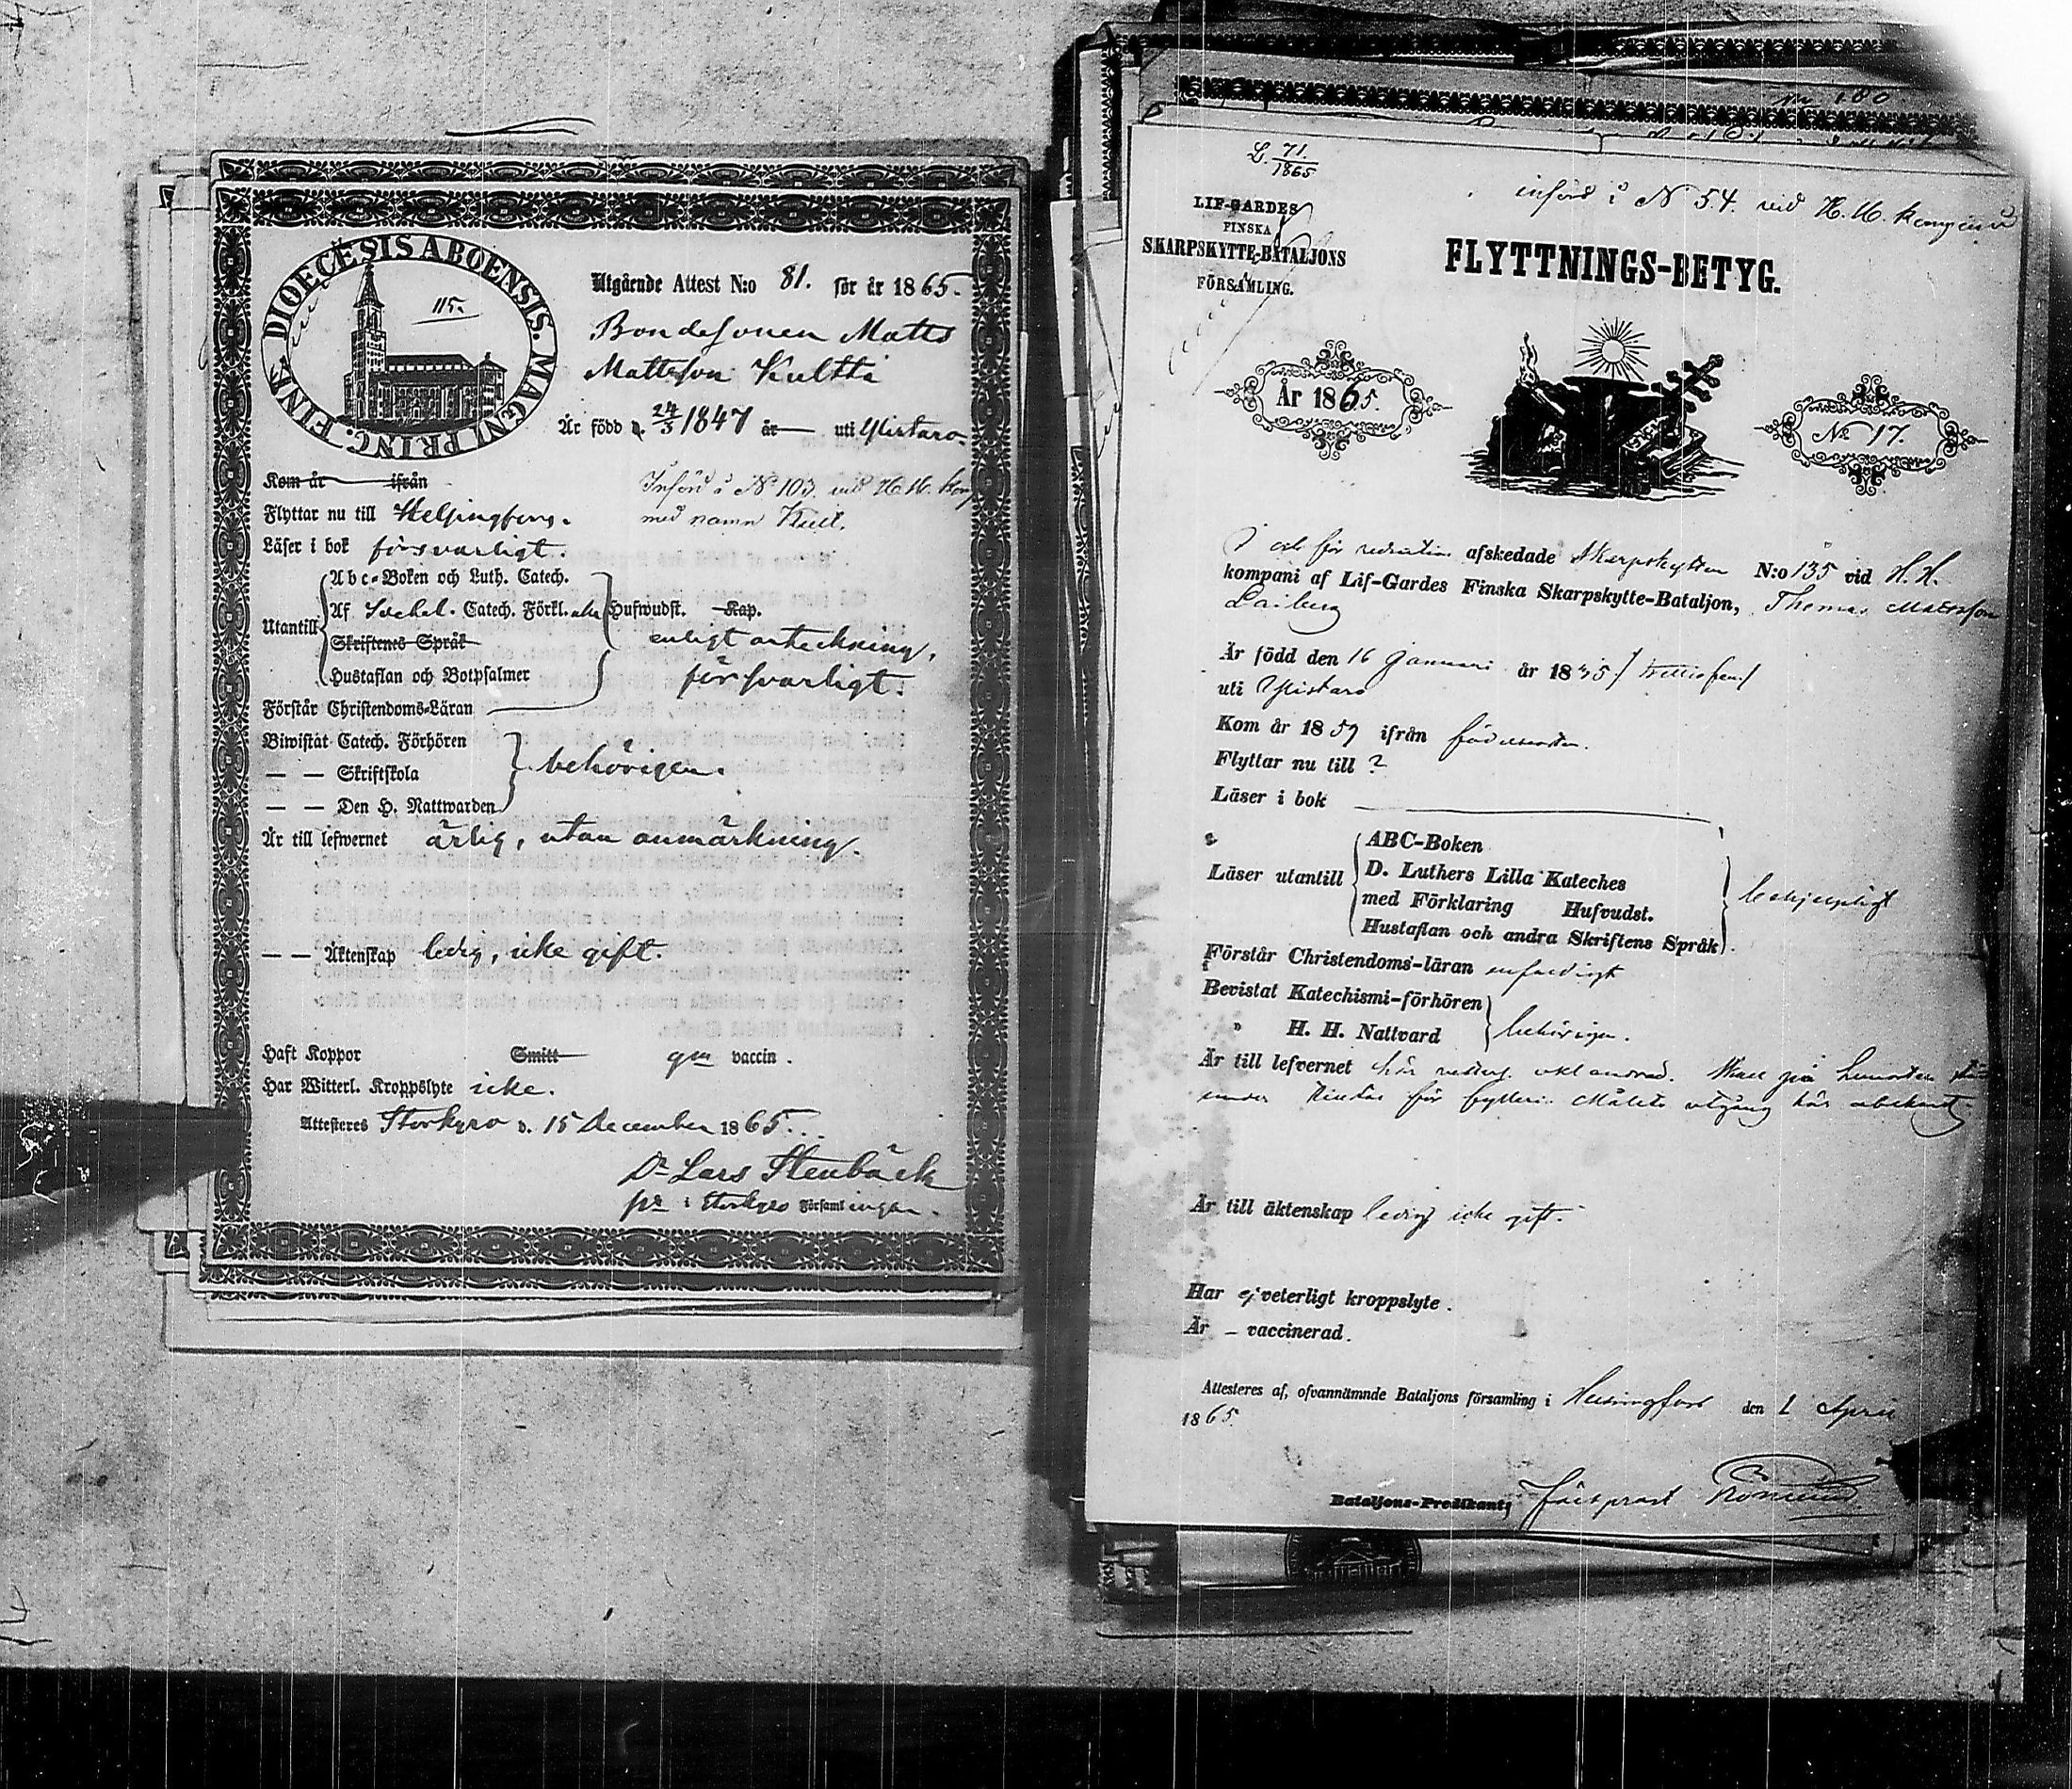 DIOECESIS ABOENSIS. MAGNI PRINC. FINL.
115.
Utgående Attest N:o 81. för år 1865.
Bondesonen Matts
Mattsson Kultti
Är född d. 24/5 1847 år — uti Ylistaro
Kom år — ifrån
Införd å No 103. vid H. M. Komp
Flyttar nu till Helsingfors.
med namn Kull.
Läser i bok försvarligt.
Utantill
Abc-Boken och Luth. Catech.
Af Svebel. Catech. Förkl. alla Hufwudst. Kap.
Skriftenes Språk
enligt anteckning,
Hustaflan och Botpsalmer
försvarligt.
Förstår Christendoms-Läran
Biwistat Catech. Förhören
— — Skriftskola
behörigen.
— — Den H. Nattwarden
Är till lefwernet ärlig, utan anmärkning.
— — Äktenskap ledig, icke gift.
Haft Koppor Smitt gm vaccin.
Har Witterl. Kroppslyte icke.
Attesteres Storkyro d. 15 December 1865.
Dr Lars Stenbäck
pr i Storkyro Församlingar.
No 180
L. 71./1865
införd å N 54. vid H. M. Kompani
LIF-GARDES
FINSKA
SKARPSKYTTE-BATALJONS
FÖRSAMLING.
FLYTTNINGS-BETYG.
År 1865.
No 17.
I och för reduction afskedade Skarpskytten N:o 135 vid H. H.
kompani af Lif-Gardes Finska Skarpskytte-Bataljon, Thomas Matsson
Laiberg
Är född den 16 Januari år 1835 / trettiofem /
uti Ylistaro
Kom år 1859 ifrån födelseorten.
Flyttar nu till ?
Läser i bok
Läser utantill
ABC-Boken
D. Luthers Lilla Kateches
med Förklaring Hufvudst.
Hustaflan och andra Skriftens Språk
behjelpligt
Förstår Christendoms-läran enfaldigt
Bevistat Katechismi-förhören
" H. H. Nattvard
behörigen.
Är till lefvernet här vetterl. oklandrad. Skall på hemorten
under för fylleri. Målets utgång här obekant.
Är till äktenskap ledig icke gift.
Har ej veterligt kroppslyte.
Är – vaccinerad.
Attesteres af, ofvannämnde Bataljons församling i Helsingfors den 1 April
1865.
Bataljons-Predikant,